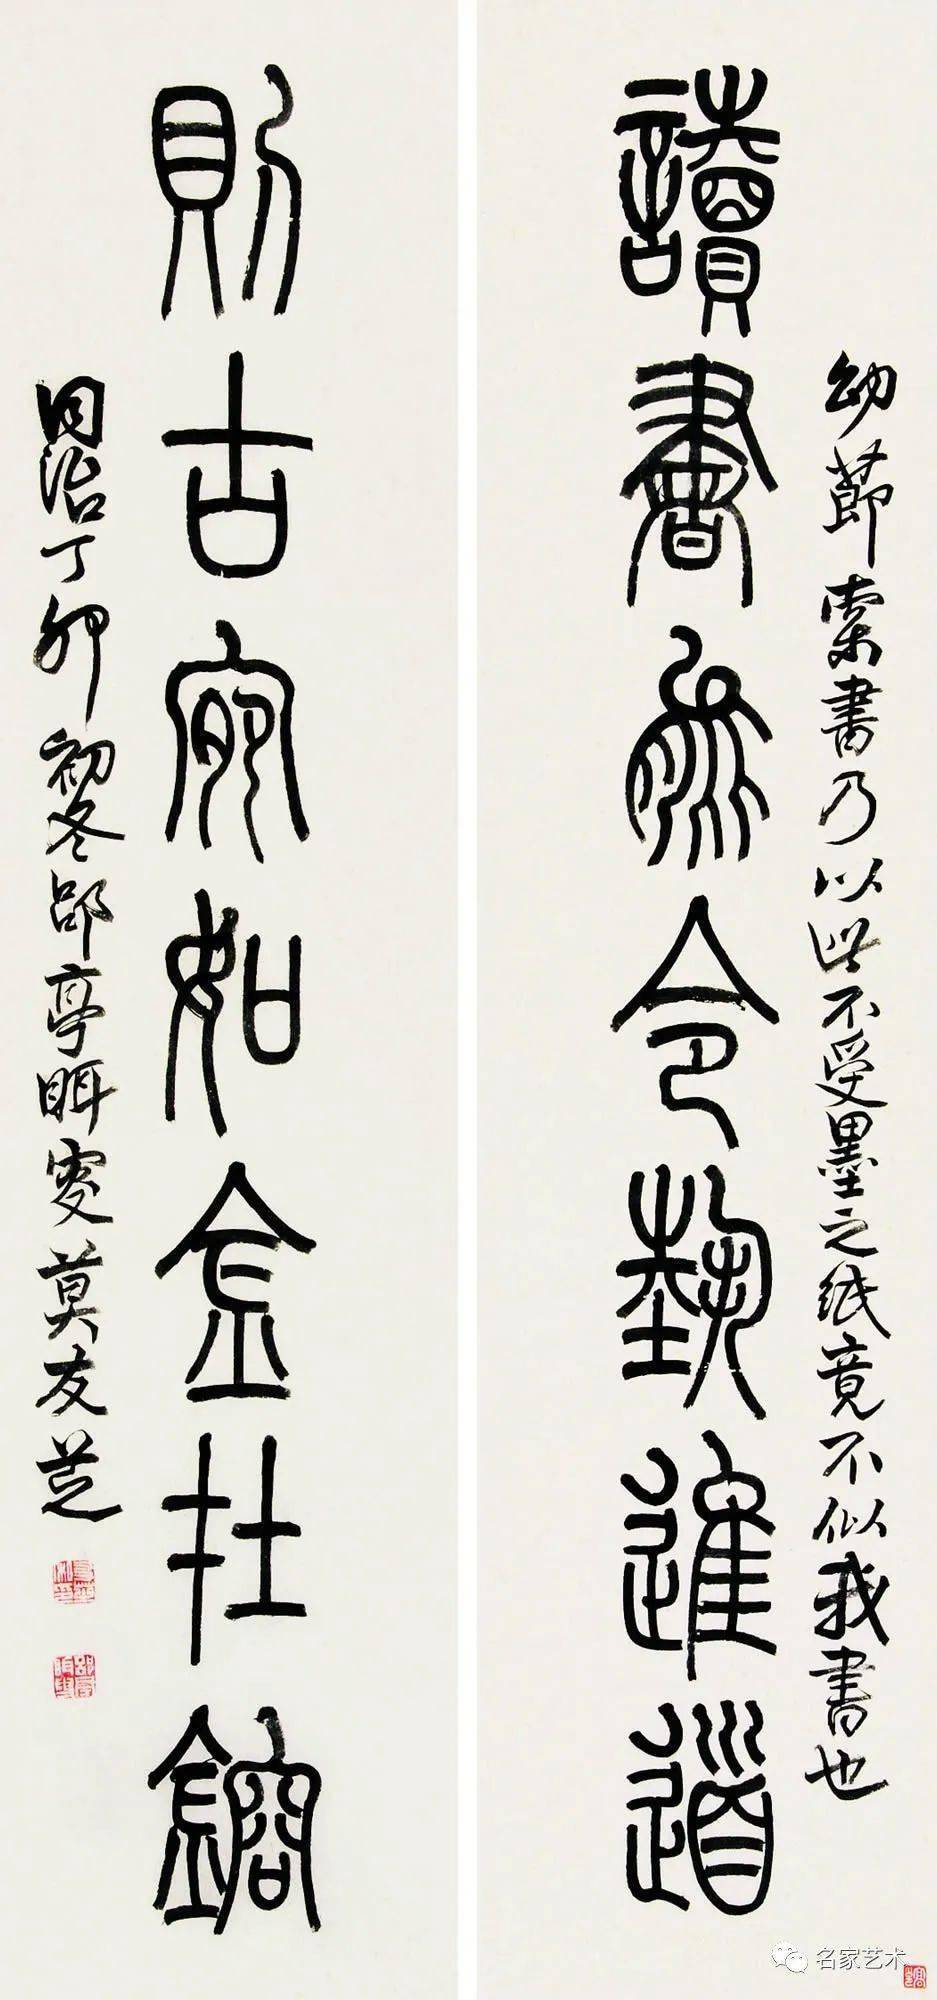 讀書能令埶進道
幼莭索書乃以此不受墨之紙竟不似我書也
則古宛如金在鎔
同治丁卯初冬郘亭眲叟莫友芝
名家艺术